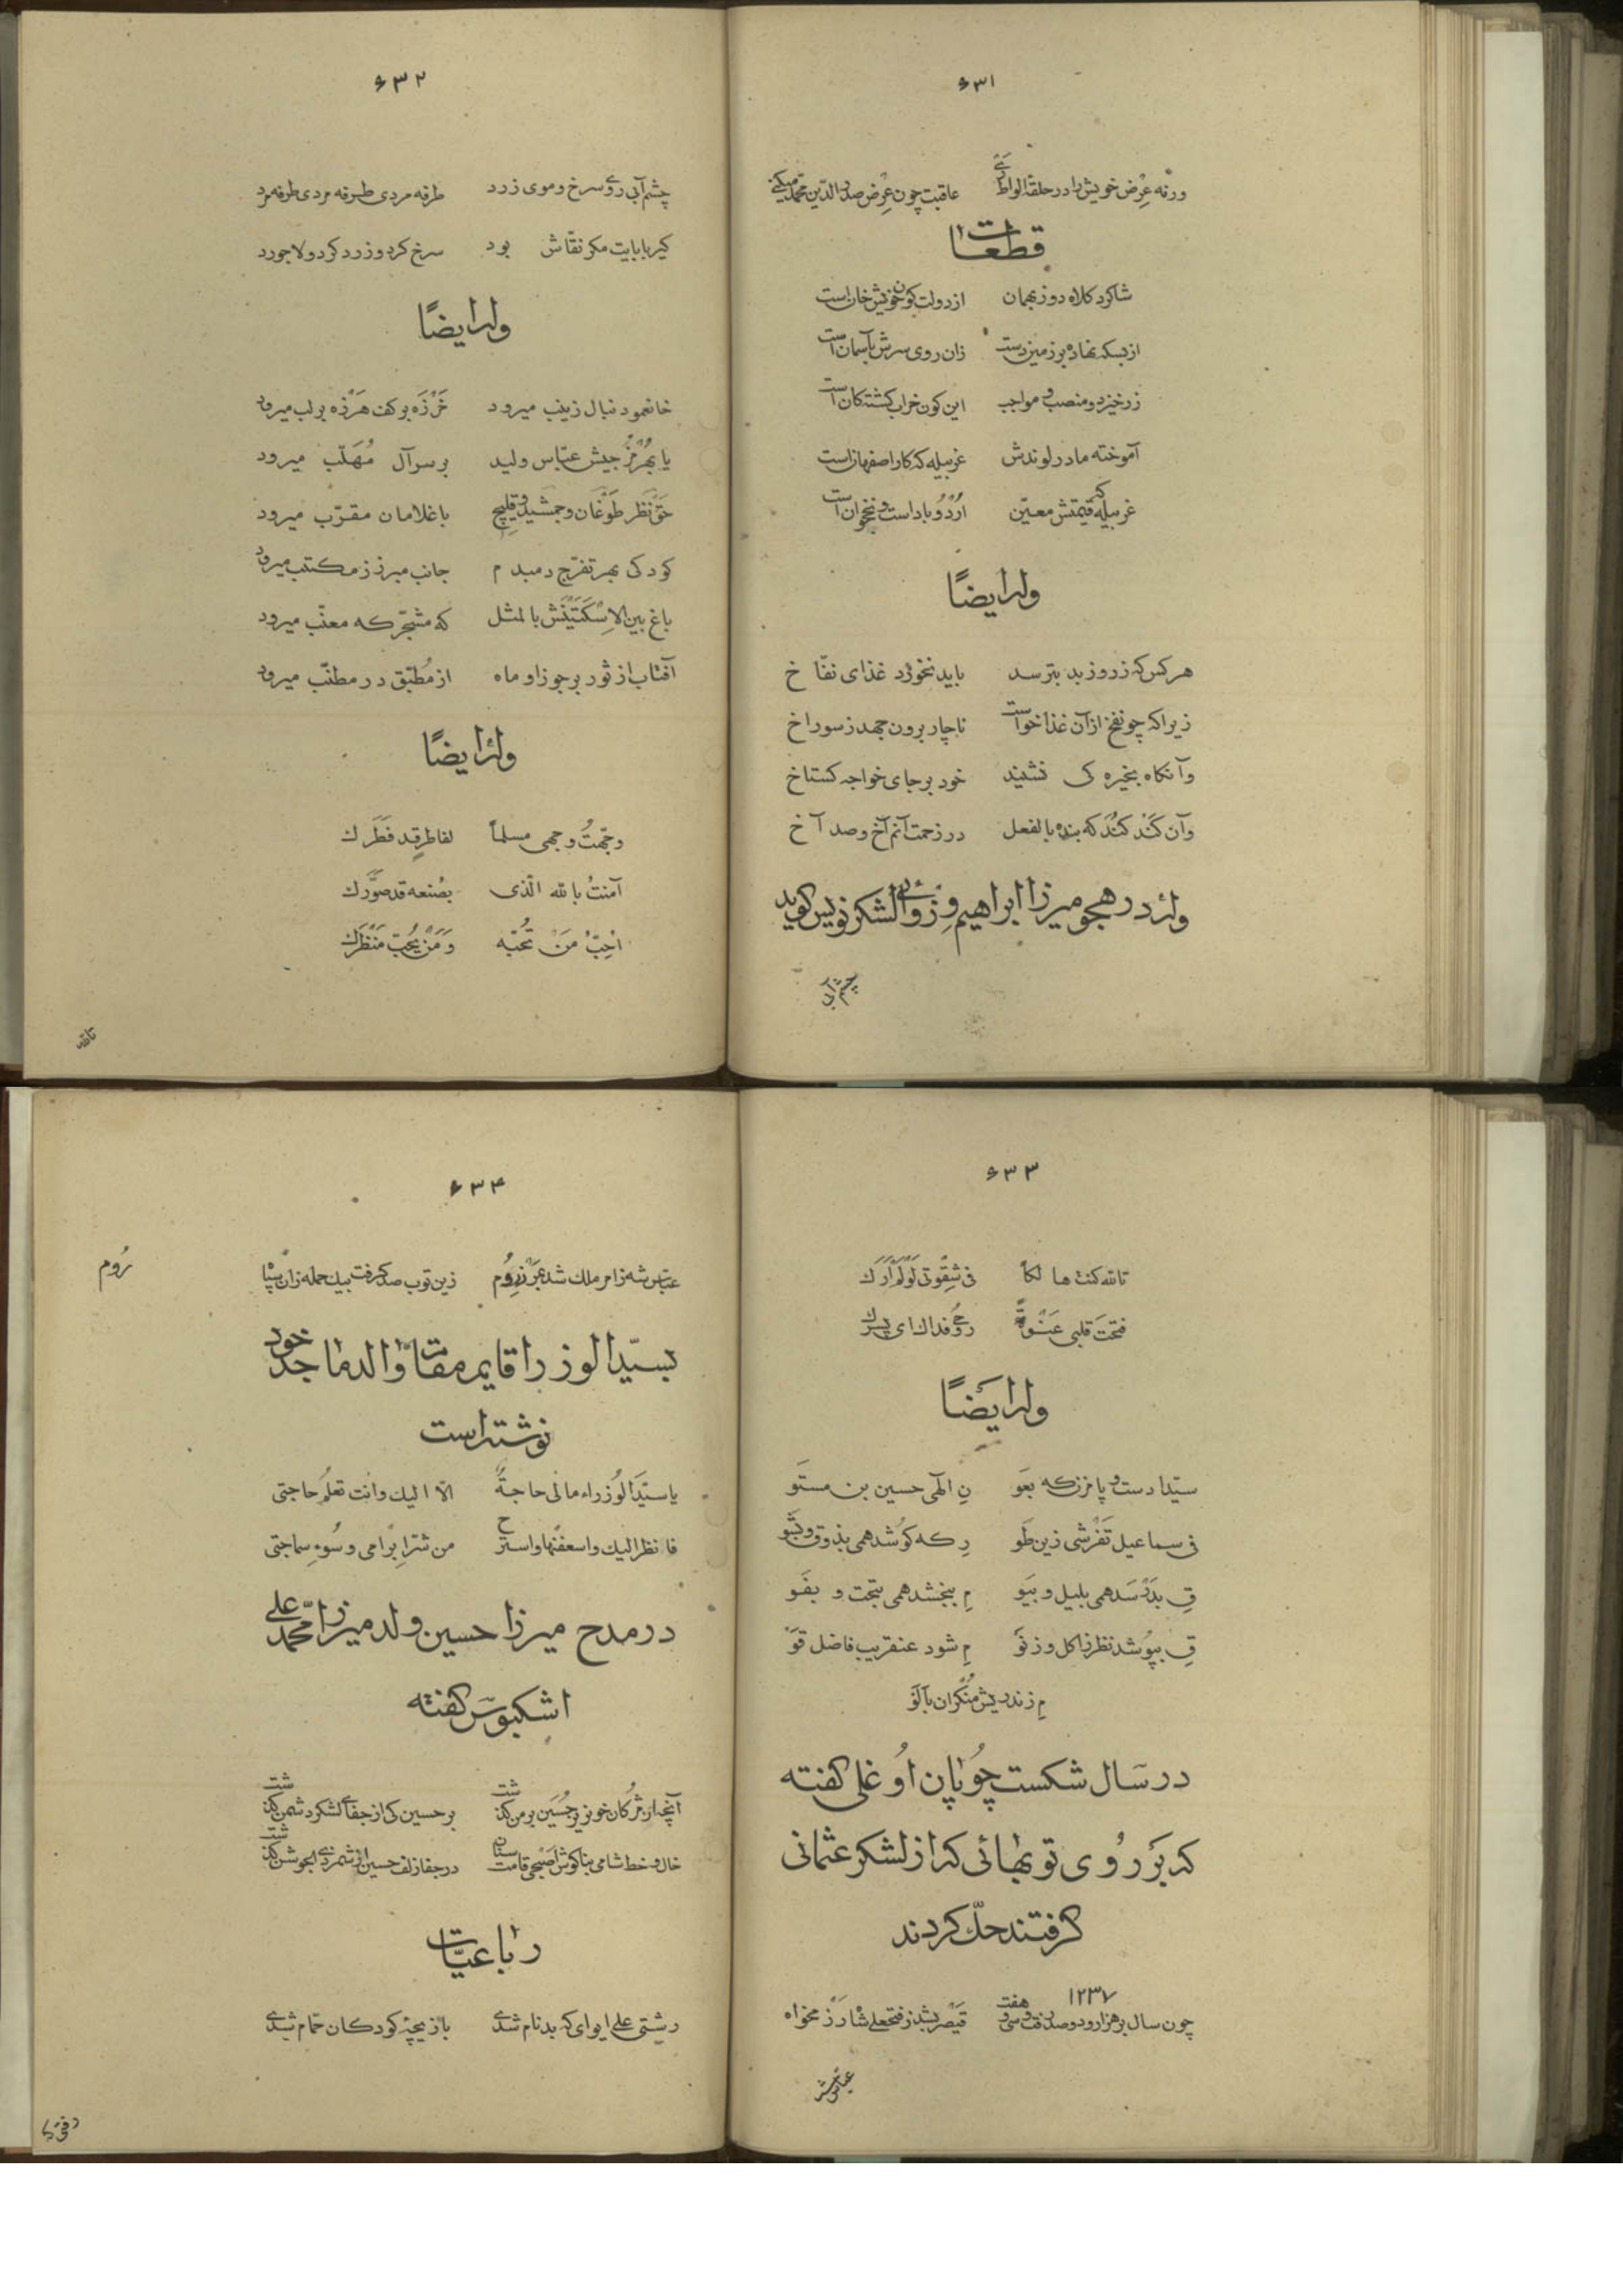 ۶۳۱
ورنه عِرْض خویش را در حلقهٔ الواط عاقبت چون عِرْض صدر الدین محمد میکنی
قطعات
شاکرد کلاه دوز بهمان از دولت کون خویش خان است
از بسکه نهاده بر زمین دست زان روی سرش بآسمان است
زر خیزد و منصب و مواجب این کون خراب کشتکان است
آموخته مادر لوندش غربیله که کار اصفهان است
غربیله که قیمتش معیّن اُرْدُوباد است و نخجوان است
وله ایضاً
هر کس که ز روز بد بترسد باید نخورد غذای نفّاخ
زیرا که چو نفخ از آن غذا خواست ناچار برون جهد ز سوراخ
وآنکاه بخیره کی نشیند خود بر جای خواجه کستاخ
وآن کَند کُند که بنده بالفعل در زحمت آنم آخ و صد آخ
وله در هجو میرزا ابراهیم وزوائی لشکر نویس کوید
چشم آبی
۶۳۲
چشم آبی روی سرخ و موی زرد طرفه مردی طرفه مردی طرفه مرد
کیر بابایت مکر نقّاش بود سرخ کرد و زرد کرد و لاجورد
وله ایضاً
خانمود نبال زینب میرود خَرْزَه بر کف هَرْزه بر لب میرود
یا بهُرْمُز جیش عبّاس ولید بر سر آل مُهَلّب میرود
حق نَظَر طوْغان و جمشید و قلیچ با غلامان مقرّب میرود
کودکی بهر تفرّج دمبدم جانب مبرز ز مکتب میرود
باغ بین الاِسْکَتَیْنَش بالمثل که مشجّر که معنّب میرود
آفتاب از ثور بر جوزا و ماه از مُطَبّق در مطنّب میرود
وله ایضاً
وجّهتُ وجهی مسلماً لفاطرٍ قد فَطَرَك
آمنتُ بالله الّذی بصُنعه قد صوّرك
اُحِبُّ مَنْ تُحبّه وَمَنْ یُحِبّ مَنْظَرَك
تالله
۶۳۳
تالله کنت هالکاً فی شِقْوتی لَوْ لَمْ اَرَك
فَتحَتَ قلبی عَنْوةً روُحی فداك ای پسرك
وله ایضاً
سیّدا دست و پا مزن که بعَو نِ الهی حسین بن مستَو
فی سماعیل تَفْرشی زین طَو رِ که کوُشد همی بذوق و بشَو
قِ بدَرْسَد همی بلیل و بیَو مِ ببخشد همی بتحت و بفَو
قِ بپوُشد نظر ز اکل و ز نَو مِ شود عنقریب فاضل قوَ
مِ زند ریش منُکران با لَو
در سال شکست چوُپان اوُغلی کفته
که بَر روُی توبهائی که از لشکر عثمانی
کرفتند حكّ کردند
۱۲۳۷
چون سال بر هزار و دو صد رفت و سی و هفت قیْصر بشد ز فتحعلی شاه رَزْمخواه
عبّاس شه
۶۳۴
عبّاس شه ز امر ملك شد بمَرْز روُم زین توب صد کرفت بیك حمله زان سپاه
رُوم
بسیّد الوزرا قایم مقام والد ماجد خود
نوشته است
یا سیّدَ الوُزراء مالی حاجةٌ الّا الیك وانت تعلمُ حاجتی
فانظر الیك واسعفنها واسترح من شرّ ابرْامی وسُوءِ سماجتی
در مدح میرزا حسین ولد میرزا محمّد علی
اشکبوسَ کفته
آنچه از مژکان خونریز حُسَین بر من کذشت بر حسین کی از جفای لشکر دشمن کذشت
خال و خط شامی بناکوش اصبحی قامت سنان در جفا زلف حسین از شمر ذی الجوشن کذشت
رباعیّات
رشتی علی ایوای که بدنام شدی بازیچهٔ کودکان حمّام شدی